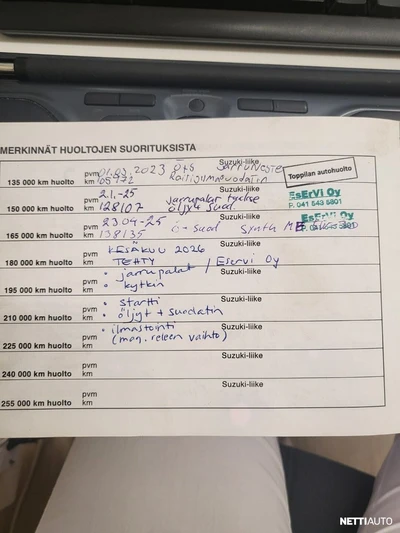 MERKINNÄT HUOLTOJEN SUORITUKSISTA
Suzuki-liike
pvm 01.03.2023 jarruneste
135 000 km huolto km 105972 Raitisilmasuodatin
Toppilan autohuolto
Suzuki-liike
pvm 2.1.-25 jarrupalat
150 000 km huolto km 128107 öljyt + suod.
EsErVi Oy
P. 041 543 5801
Suzuki-liike
pvm 23.04-25
165 000 km huolto km 138135 ö + suod Synth
EsErVi Oy
Suzuki-liike
pvm KESÄKUU 2026
180 000 km huolto km TEHTY / Eservi Oy
Suzuki-liike
pvm • jarrupalat
195 000 km huolto km • kytkin
Suzuki-liike
pvm • startti
210 000 km huolto km • öljyt + suodatin
Suzuki-liike
pvm • ilmastointi
225 000 km huolto km (mag. releen vaihto)
Suzuki-liike
pvm
240 000 km huolto km
Suzuki-liike
pvm
255 000 km huolto km
NETTIAUTO